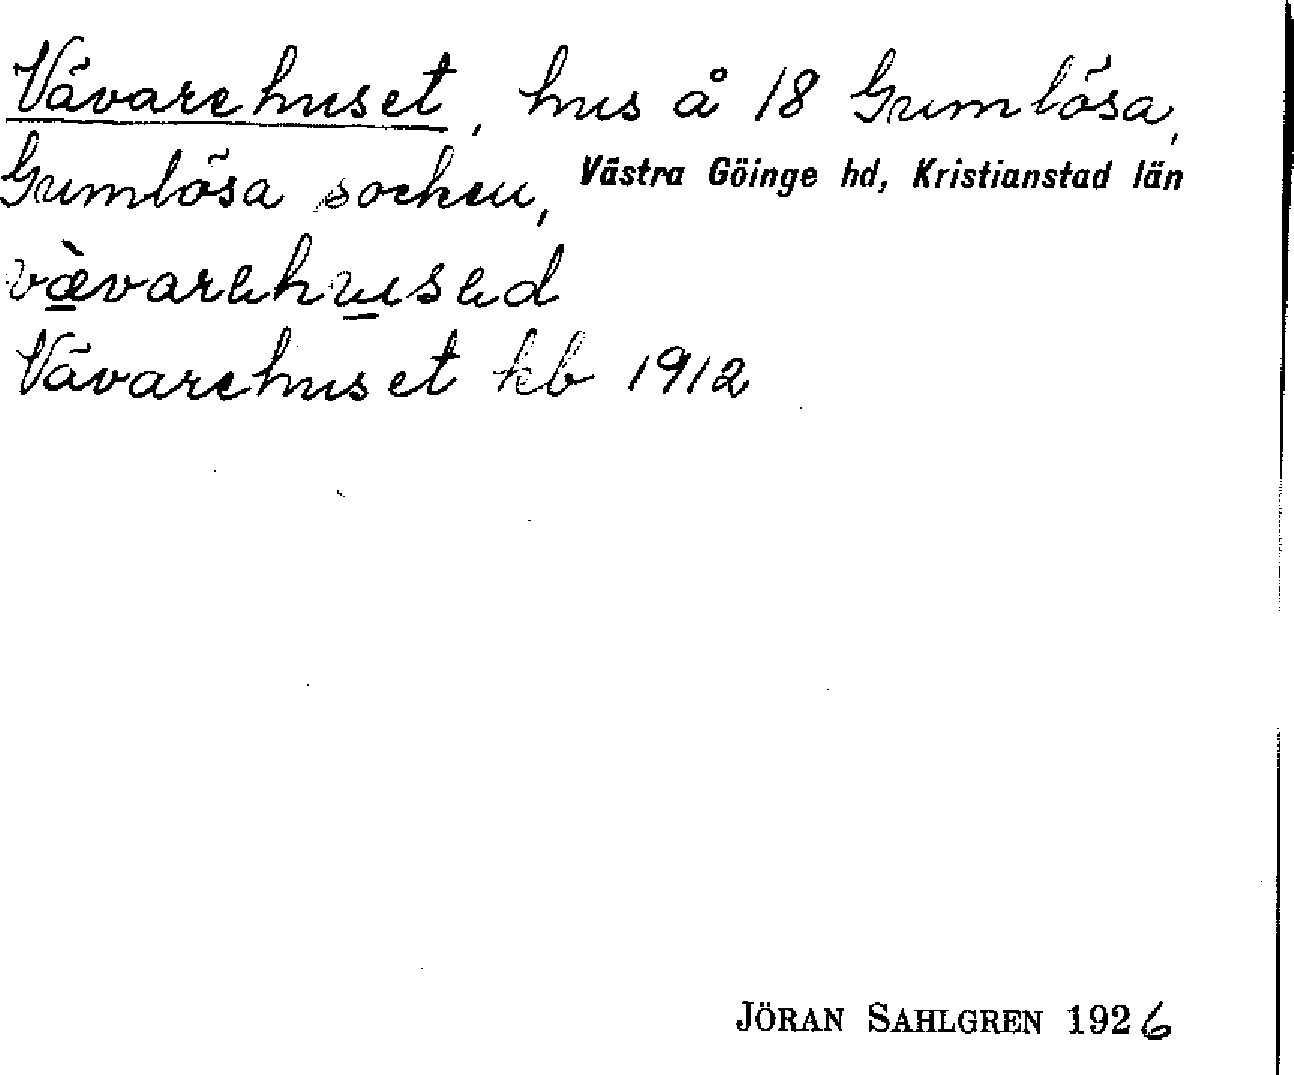 Vävarehuset, hus å 18 Gumlösa,
Gumlösa socken, Västra Göinge hd, Kristianstad län
væ̀varəhusəd
Vävarehuset kb 1912
JÖRAN SAHLGREN 1926